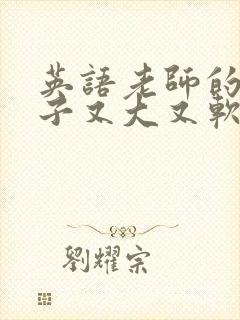 英語老師的
子又大又軟
劉耀宗